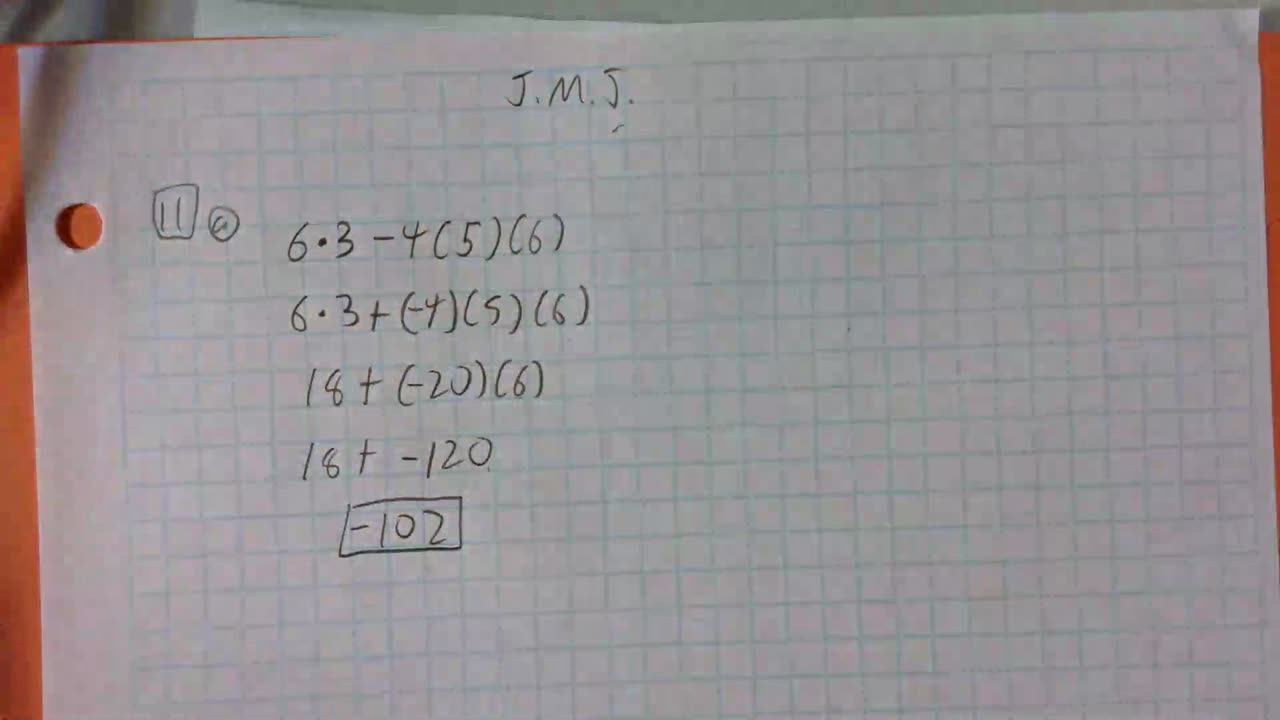 J.M.J.
11 a 6·3-4(5)(6)
6·3+(-4)(5)(6)
18+(-20)(6)
18+-120
-102